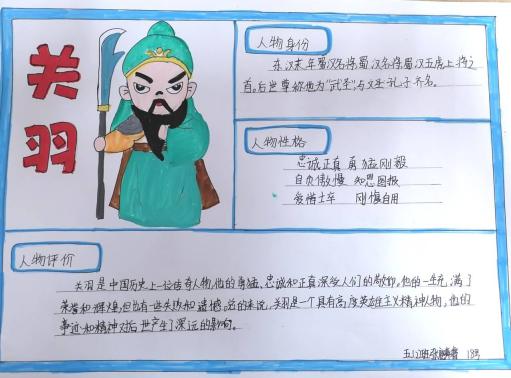 关羽
人物身份
东汉末年蜀汉名将蜀汉名将蜀汉五虎上将之
首。后世尊称他为“武圣”,与文圣孔子齐名。
人物性格
忠诚正真 勇猛刚毅
自负傲慢 知恩图报
爱惜士卒 刚愎自用
人物评价
关羽是中国历史上一位传奇人物,他的勇猛、忠诚和正真深受人们的敬仰,他的一生充满了
荣誉和辉煌,但也有一些失败和遗憾。总的来说,关羽是一个具有高度英雄主义精神人物,他的
事迹和精神对后世产生了深远的影响。
五(2)班 18号